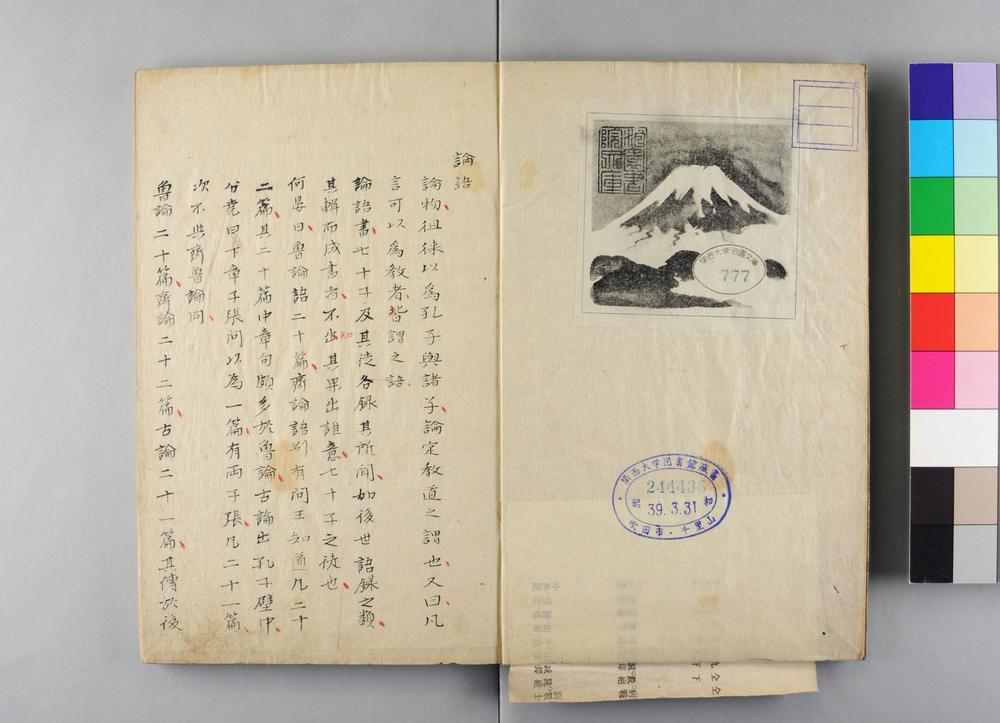 論語
論物徂徠以爲孔子與諸子論定教道之謂也又曰凡
言可以爲教者皆謂之語
論語書七十子及其徒各録其所聞如後世語録之類
其輯而成書者不知出其果出誰意七十子之徒也
何晏曰魯論語二十篇齊論語別有問王知道凡二十
二篇其二十篇中章句頗多於魯論古論出孔子壁中
分堯曰下章子張問以為一篇有両子張凡二十一篇
次不與齊魯論同
魯論二十篇齊論二十二篇古論二十一篇其傳於後
関西大学泊園文庫
777
関西大学図書館蔵書
244436
昭和
39.3.31
吹田市・千里山